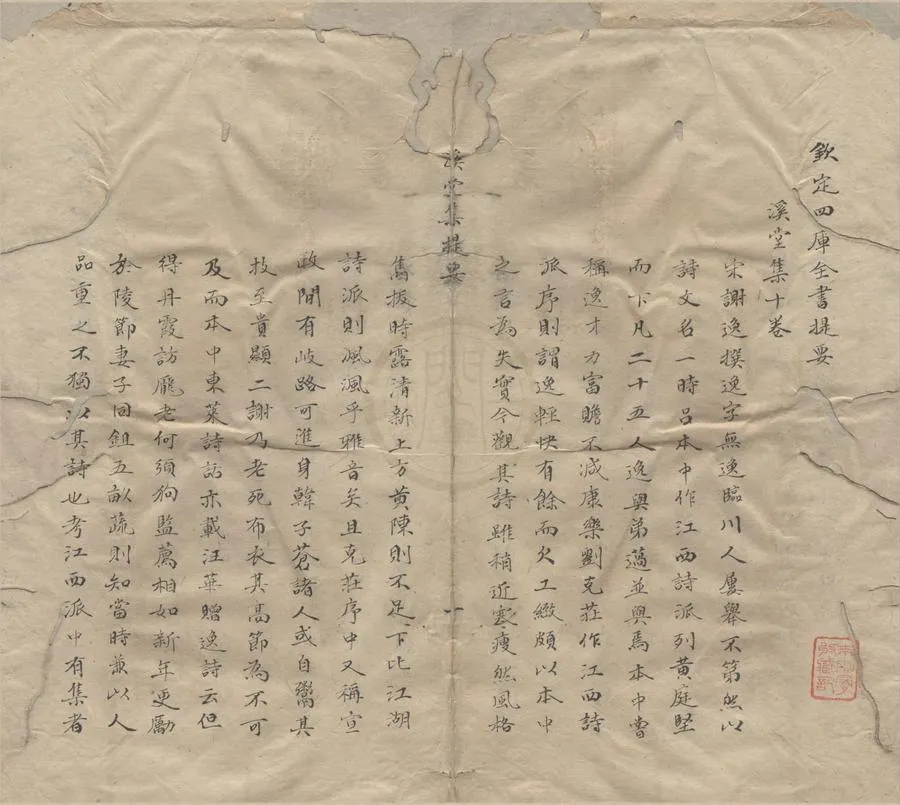 欽定四庫全書提要
溪堂集十卷
宋謝逸撰逸字無逸臨川人屢舉不第然以
詩文名一時呂本中作江西詩派列黄庭堅
而下凡二十五人逸與弟薖並與焉本中嘗
稱逸才力富贍不減康樂劉克莊作江西詩
派序則謂逸輕快有餘而欠工緻頗以本中
之言為失實今觀其詩雖稍近寒瘦然風格
溪堂集提要
一
雋拔時露清新上方黄陳則不足下比江湖
詩派則渢渢乎雅音矣且克莊序中又稱宣
政間有岐路可進身韓子蒼諸人或自鬻其
技至貴顯二謝乃老死布衣其高節為不可
及而本中東萊詩話亦載汪革贈逸詩云但
得丹霞訪龎老何須狗監薦相如新年更勵
於陵節妻子同鉏五畝蔬則知當時兼以人
品重之不獨以其詩也考江西派中有集者